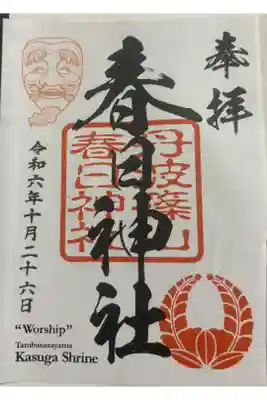 奉拝
春日神社
丹波篠山
春日神社
令和六年十月二十六日
“Worship”
Tambasasayama
Kasuga Shrine